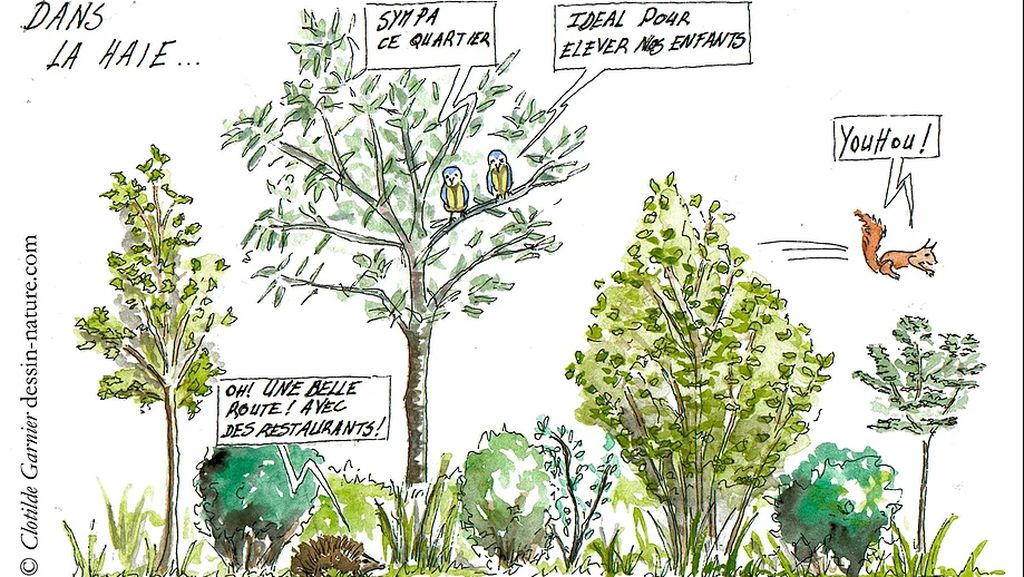 DANS
LA HAIE...
SYMPA
CE QUARTIER
IDEAL POUR
ELEVER NOS ENFANTS
YOUHOU!
OH! UNE BELLE
ROUTE! AVEC
DES RESTAURANTS!
© Clotilde Garnier dessin-nature.com